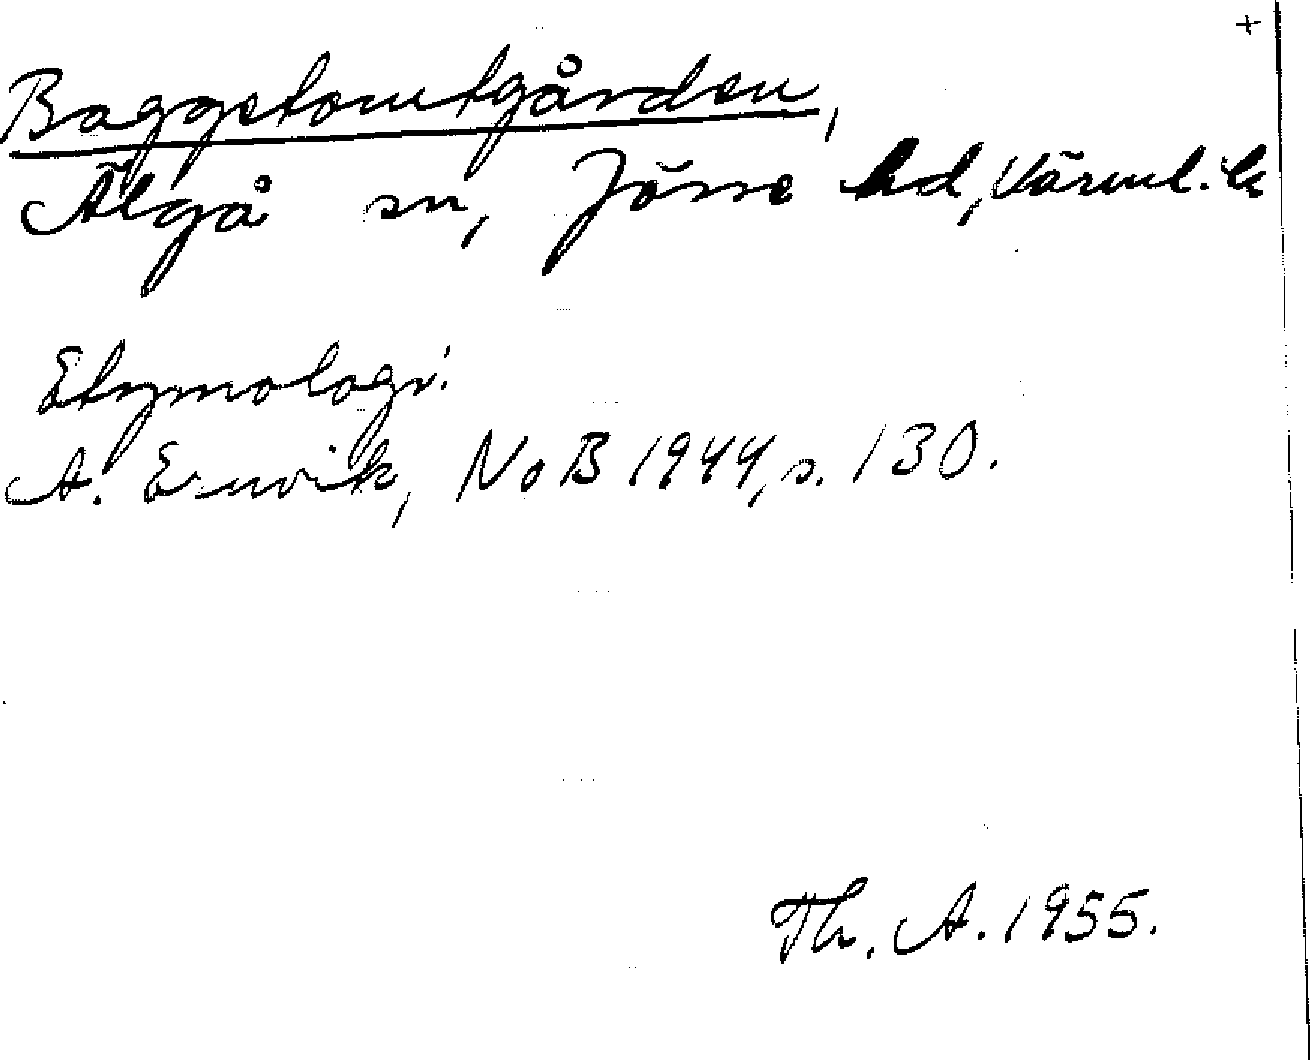 +
Baggetomtgården,
Älgå sn, Jösse hd, Värml. l.
Etymologi:
A. Ernvik, NoB 1944, s. 130.
Th. A. 1955.